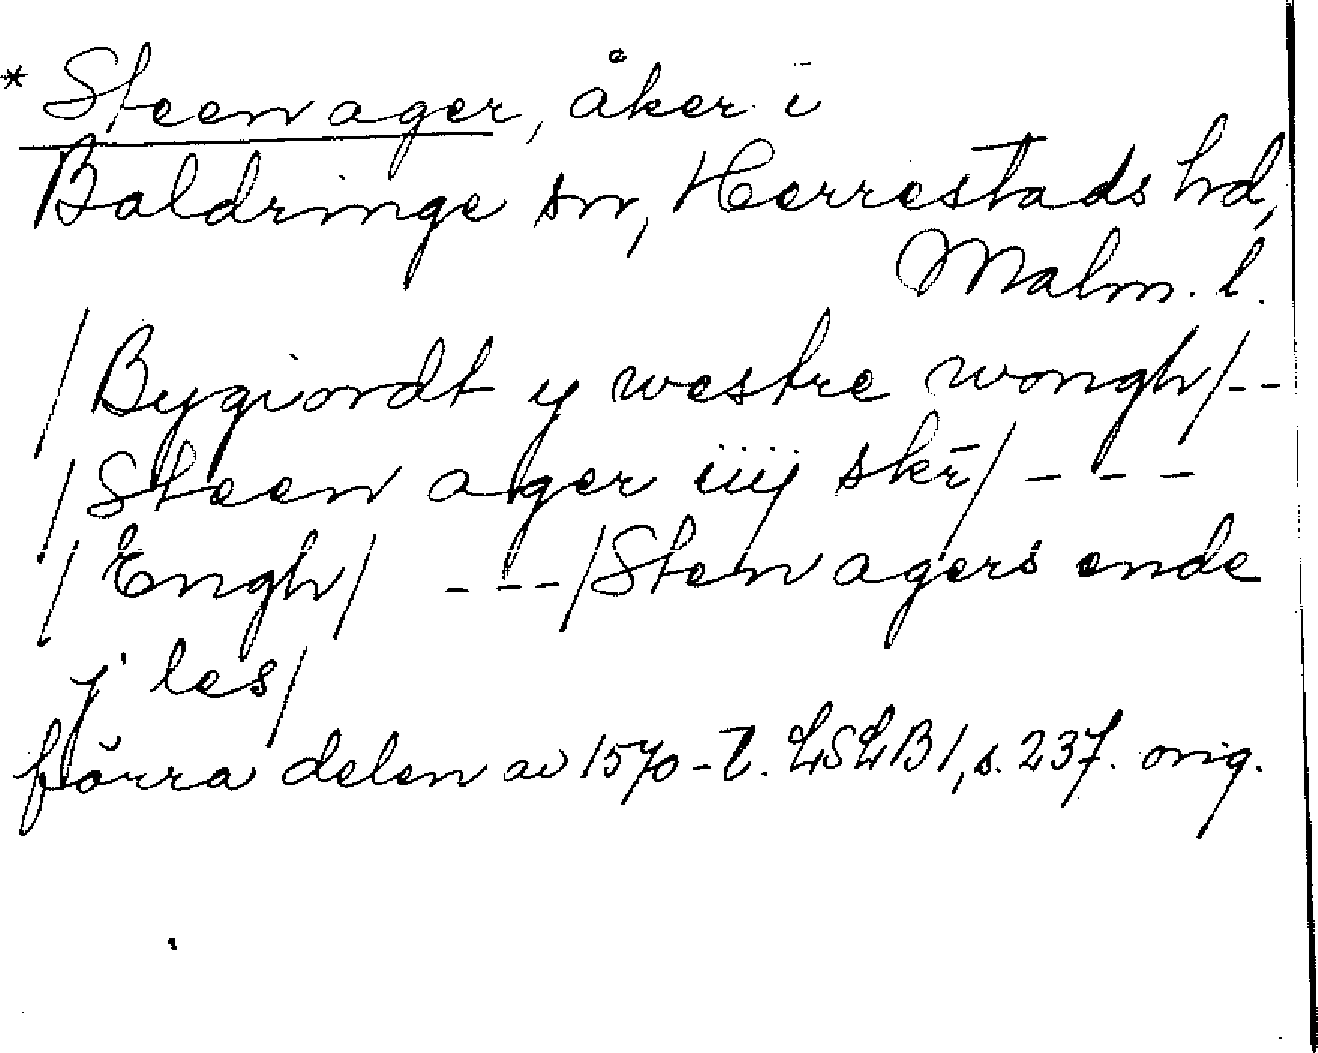 * Steenager, åker i
Baldringe sn, Herrestads hd,
Malm. l.
/Bygiordt y westre wongh/--
/Steen ager iiij skr̄/ - - -
/Engh/ ---/Sten agers ende
j les/
förra delen av 1570-t. LSLB1, s. 237. orig.